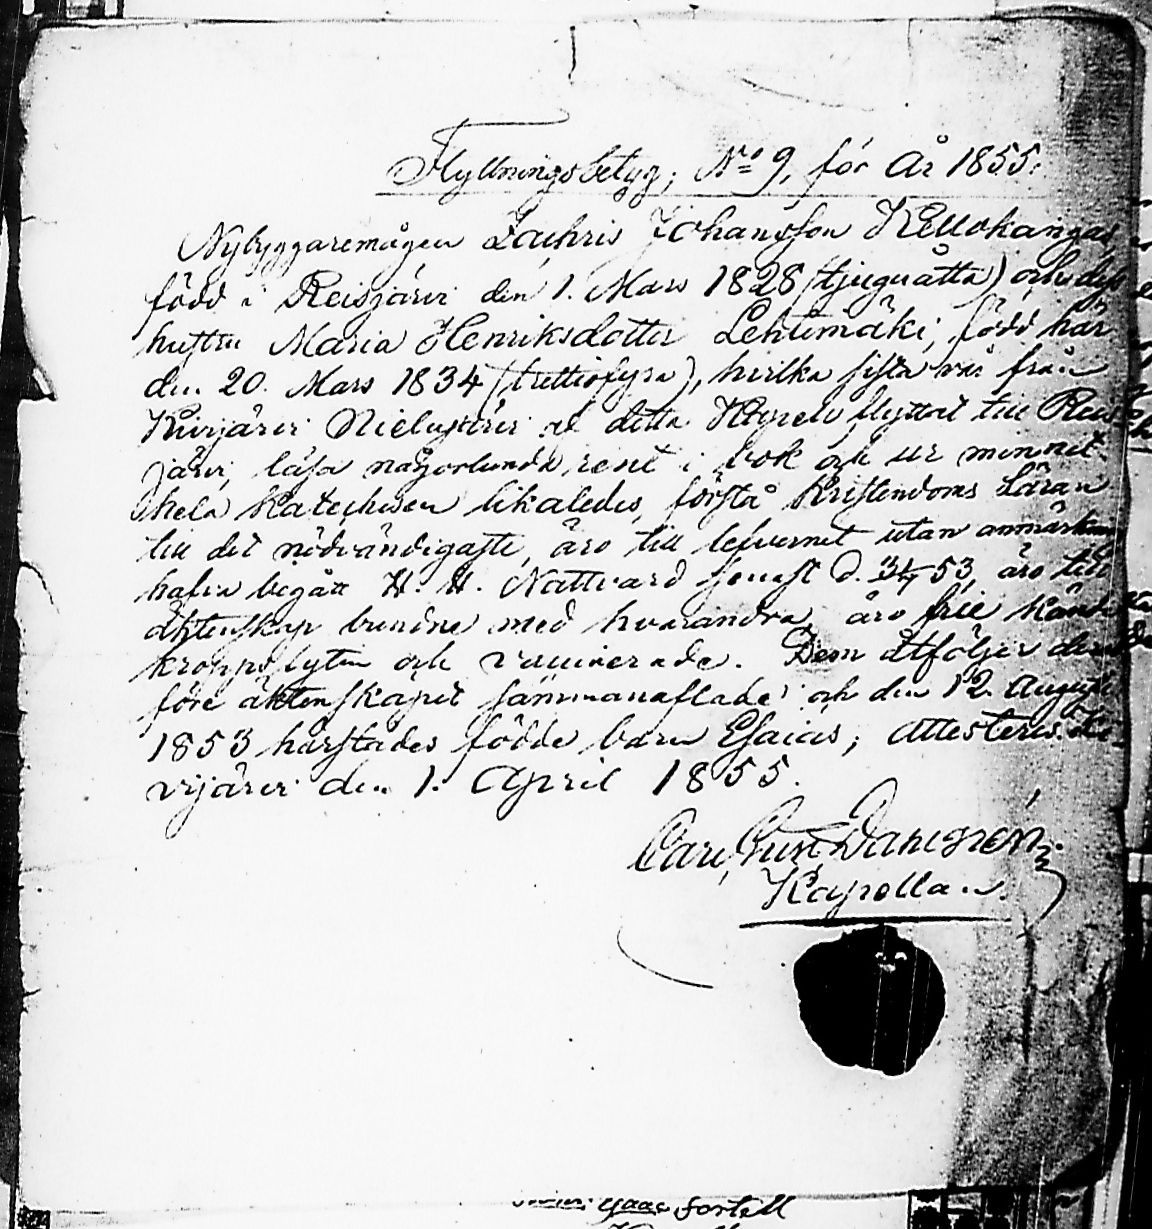 Flyttningsbetyg, No 9, för år 1855.
Nybyggaremågen Zachris Johansson Kellokangas
född i Reisjärvi den 1. Mars 1828 (tjuguåtta) och dess
hustru Maria Henriksdotter Lehtimäki, född här
den 20. Mars 1834 (trettiofyra), hvilka sista vår från
Kivijärvi af detta Kapell flyttat till Reis
järvi, läsa någorlunda rent i bok och ur minnet
hela Katechesen likaledes, förstå Kristendoms Läran
till det nödvändigaste, äro till lefvernet utan anmärkning
hafva begått H. H. Nattvard senast d. 3/4 53, äro till
äktenskap bundne med hvarandra, äro frie kände
kroppslyten och vaccinerade. Dem åtföljer deras
före äktenskapet sammanaflade och den 12 Augusti
1853 härstädes födde barn Esaias; attesteras. Ki-
vijärvi den 1. April 1855.
Carl Gust Dahlgrén
Kapellan.